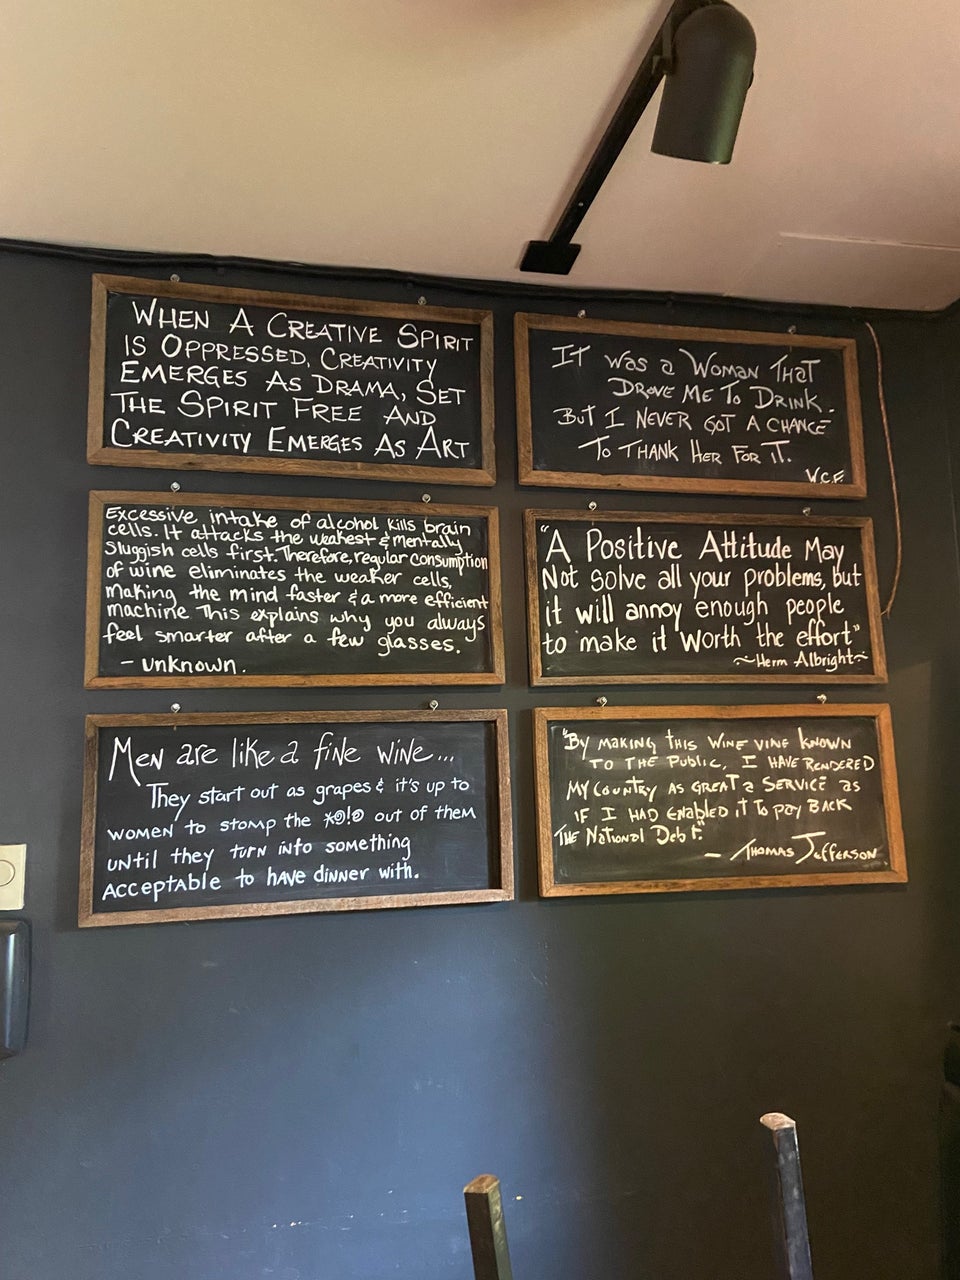 WHEN A CREATIVE SPIRIT
IS OPPRESSED, CREATIVITY
EMERGES AS DRAMA, SET
THE SPIRIT FREE AND
CREATIVITY EMERGES AS ART
IT was a WOMAN THAT
DROVE ME TO DRINK.
BUT I NEVER GOT A CHANCE
TO THANK HER FOR IT.
W.C.F.
Excessive intake of alcohol kills brain
cells. It attacks the weakest & mentally
sluggish cells first. Therefore, regular consumption
of wine eliminates the weaker cells,
making the mind faster & a more efficient
machine. This explains why you always
feel smarter after a few glasses.
- unknown.
"A Positive Attitude May
Not solve all your problems, but
it will annoy enough people
to make it worth the effort"
~Herm Albright~
Men are like a fine wine...
They start out as grapes & it's up to
women to stomp the *@!@ out of them
until they turn into something
acceptable to have dinner with.
"By making this wine vine known
to the public, I have rendered
my country as great a service as
if I had enabled it to pay back
the National Debt."
- Thomas Jefferson